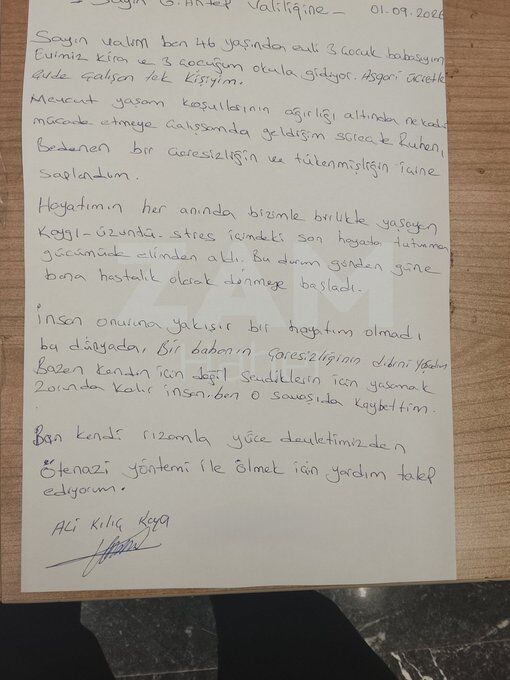 - Sayın G. Antep Valiliğine - 01.09.2026
Sayın valim ben 46 yaşında evli 3 çocuk babasıyım
Evimiz kira ve 3 çocuğum okula gidiyor. Asgari ücretle
evde çalışan tek kişiyim.
Mevcut yaşam koşullarının ağırlığı altında ne kadar
mücade etmeye çalışsamda geldiğim süreçte Ruhen,
Bedenen bir çaresizliğin ve tükenmişliğin içine
saplandım.
Hayatımın her anında bizimle birlikte yaşayan
Kaygı-üzüntü-stres içimdeki son hayata tutunma
gücümüde elimden aldı. Bu durum günden güne
bana hastalık olarak dönmeye başladı.
İnsan onuruna yakışır bir hayatım olmadı
bu dünyada, Bir babanın çaresizliğinin dibini yaşadım
Bazen kendin için değil sevdiklerin için yaşamak
zorunda kalır insan. ben o savaşıda kaybettim.
Ben kendi rızamla yüce devletimizden
Ötenazi yöntemi ile ölmek için yardım talep
ediyorum.
Ali Kılıç Kaya
ZAM
Haber